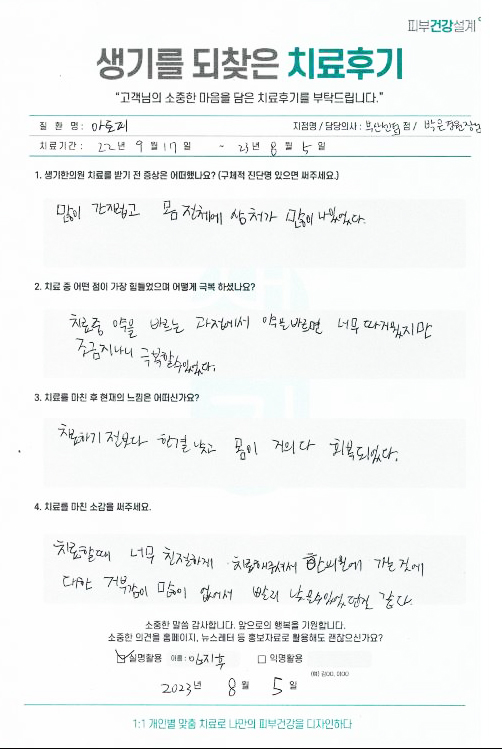 피부건강설계
생기를 되찾은 치료후기
"고객님의 소중한 마음을 담은 치료후기를 부탁드립니다."
질 환 명 : 아토피 지점명 / 담당의사 : 부산센텀점 /
치료기간 : 22년 9월 17일 ~ 23년 8월 5일
1. 생기한의원 치료를 받기 전 증상은 어떠했나요? (구체적 진단명 있으면 써주세요.)
많이 간지럽고 몸 전체에 상처가 많이 나있었다.
2. 치료 중 어떤 점이 가장 힘들었으며 어떻게 극복 하셨나요?
치료중 약을 바르는 과정에서 약을바르면 너무 따가웠지만
조금지나니 극복할수있었다.
3. 치료를 마친 후 현재의 느낌은 어떠신가요?
치료하기 전보다 한결 낫고 몸이 거의 다 회복되었다.
4. 치료를 마친 소감을 써주세요.
치료할때 너무 친절하게 치료해주셔서 한의원에 가는것에
대한 거부감이 많이 없어서 빨리 낳을수있었던것 같다.
소중한 말씀 감사합니다. 앞으로의 행복을 기원합니다.
소중한 의견을 홈페이지, 뉴스레터 등 홍보자료로 활용해도 괜찮으신가요?
실명활용 이름: 임지후 익명활용
(예) 김OO, 이OO
2023년 8월 5일
1:1 개인별 맞춤 치료로 나만의 피부건강을 디자인하다